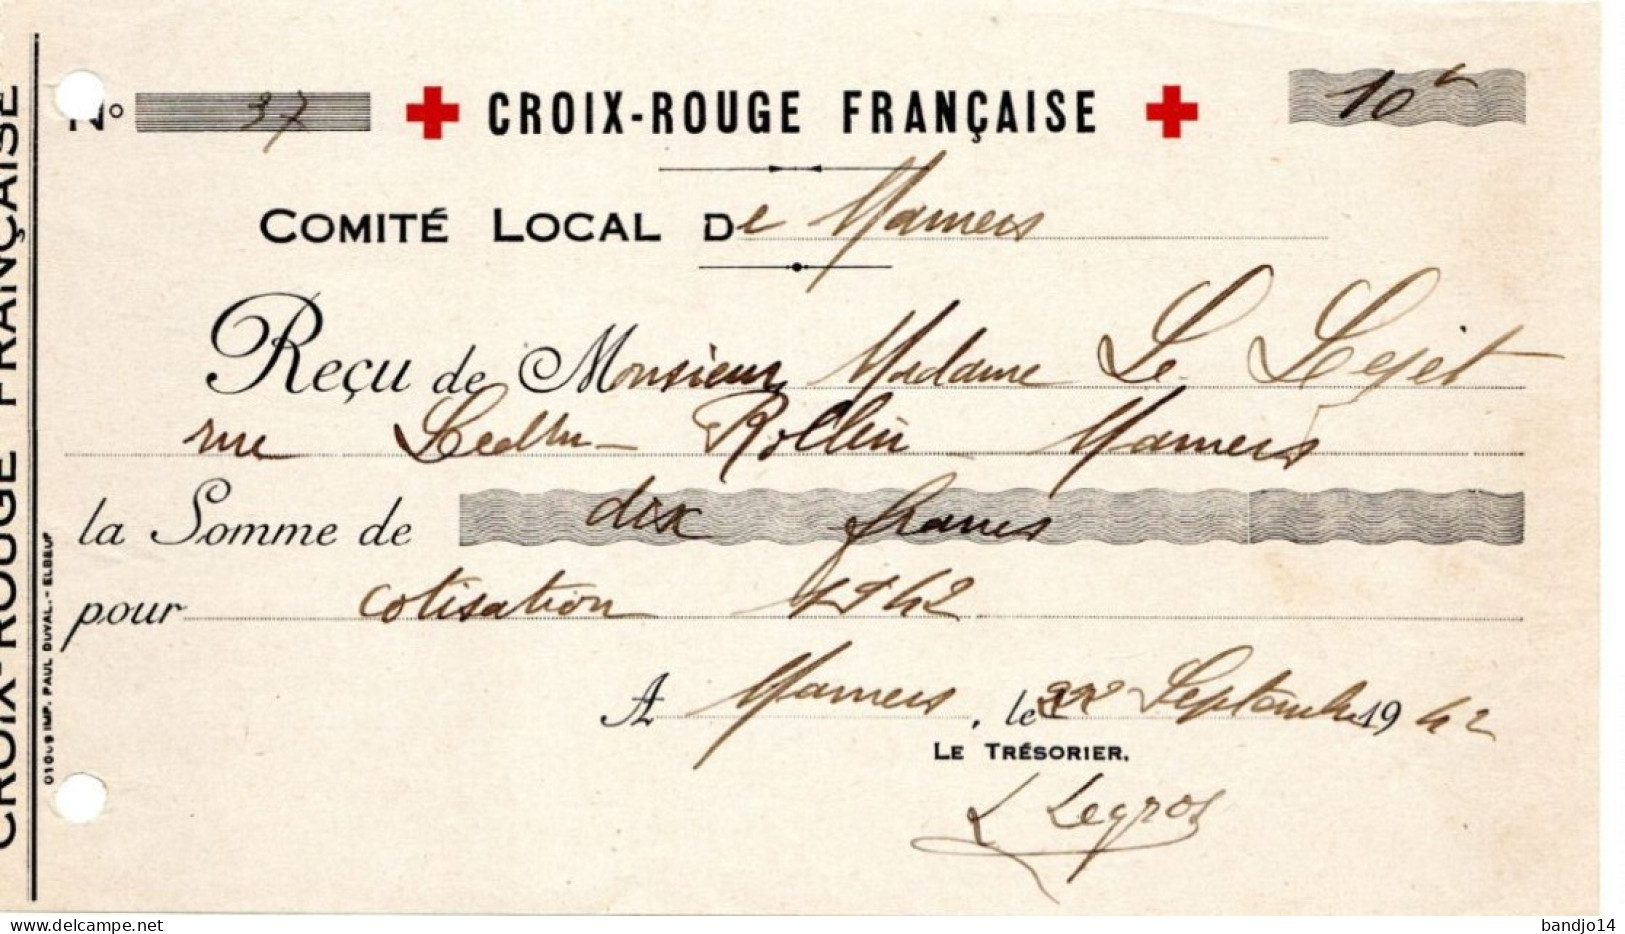 N° 37 CROIX-ROUGE FRANÇAISE 10
COMITÉ LOCAL De Mamers
Reçu de Monsieur, Madame Le
rue Ledru-Rollin Mamers
la Somme de dix francs
pour cotisation 1942
A Mamers, le Septembre 1942
LE TRÉSORIER.
L Legros
CROIX-ROUGE FRANÇAISE
IMP. PAUL DUVAL.- ELBEUF
delcampe.net
bandjo14